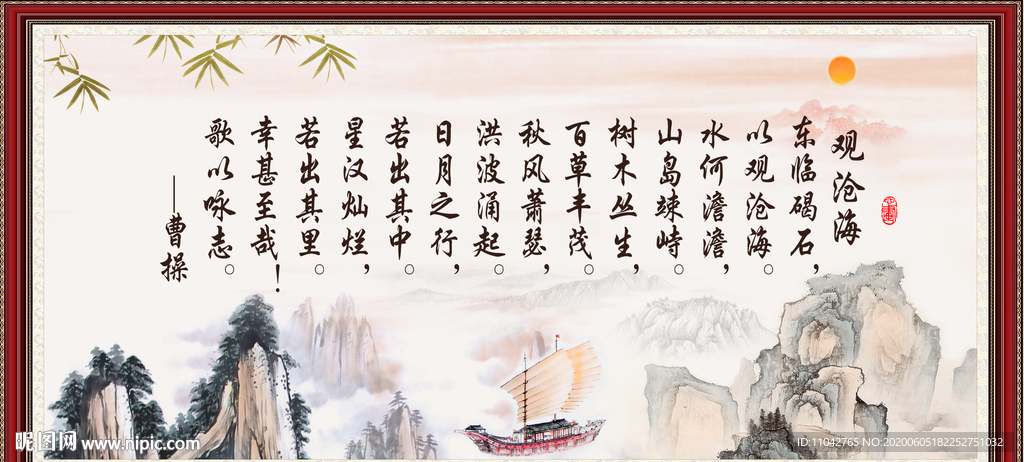 观沧海
东临碣石，
以观沧海。
水何澹澹，
山岛竦峙。
树木丛生，
百草丰茂。
秋风萧瑟，
洪波涌起。
日月之行，
若出其中。
星汉灿烂，
若出其里。
幸甚至哉！
歌以咏志。
——曹操
昵图网 www.nipic.com
ID:11042765 NO:20200605182252751032